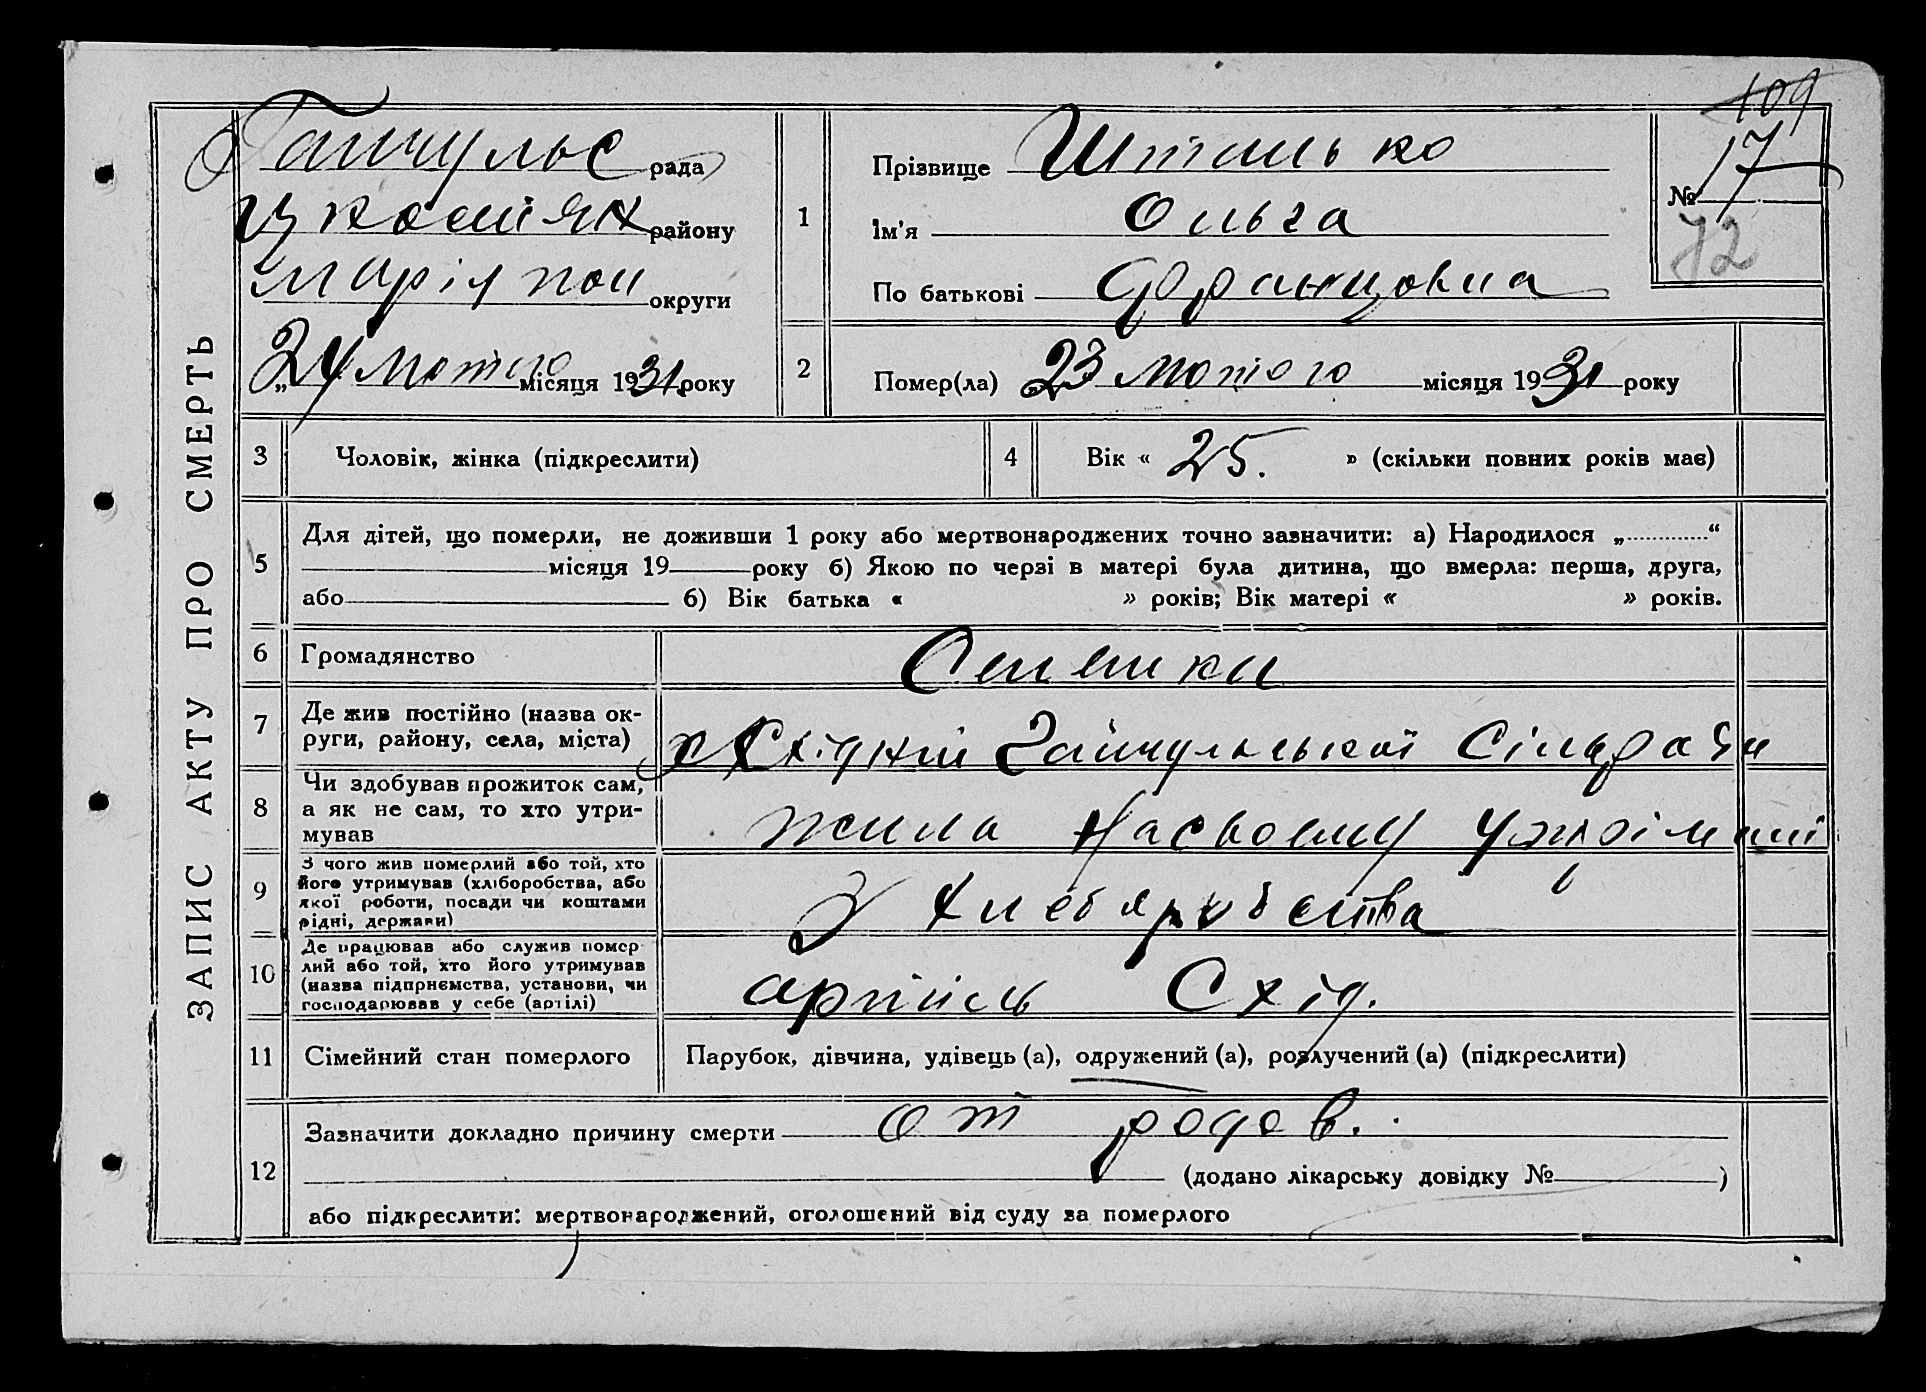 109
Гайчульс рада
району
Маріупол округи
„24 лютого місяця 1931 року
1
Прізвище Штанько
Ім'я Ольга
По батькові Францовна
№ 17
72
2
Помер(ла) „23 лютого місяця 1931 року
ЗАПИС АКТУ ПРО СМЕРТЬ
3 Чоловік, жінка (підкреслити)
4 Вік « 25. » (скільки повних років має)
5 Для дітей, що померли, не доживши 1 року або мертвонароджених точно зазначити: а) Народилося „............“
місяця 19 року б) Якою по черзі в матері була дитина, що вмерла: перша, друга,
або б) Вік батька « » років; Вік матері « » років.
6 Громадянство
7 Де жив постійно (назва ок-
руги, району, села, міста) х Східній Гайчульської Сільради
8 Чи здобував прожиток сам,
а як не сам, то хто утри-
мував жила на своєму
9 З чого жив померлий або той, хто
його утримував (хліборобства, або
якої роботи, посади чи коштами
рідні, держави) З хлеборобства
10 Де працював або служив помер-
лий або той, хто його утримував
(назва підприємства, установи, чи
господарював у себе (артілі) артіль Схід.
11 Сімейний стан померлого Парубок, дівчина, удівець (а), одружений (а), розлучений (а) (підкреслити)
12 Зазначити докладно причину смерти от родов.
(додано лікарську довідку № )
або підкреслити: мертвонароджений, оголошений від суду за померлого